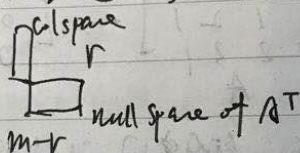 col space
r
null space of A^T
m-r